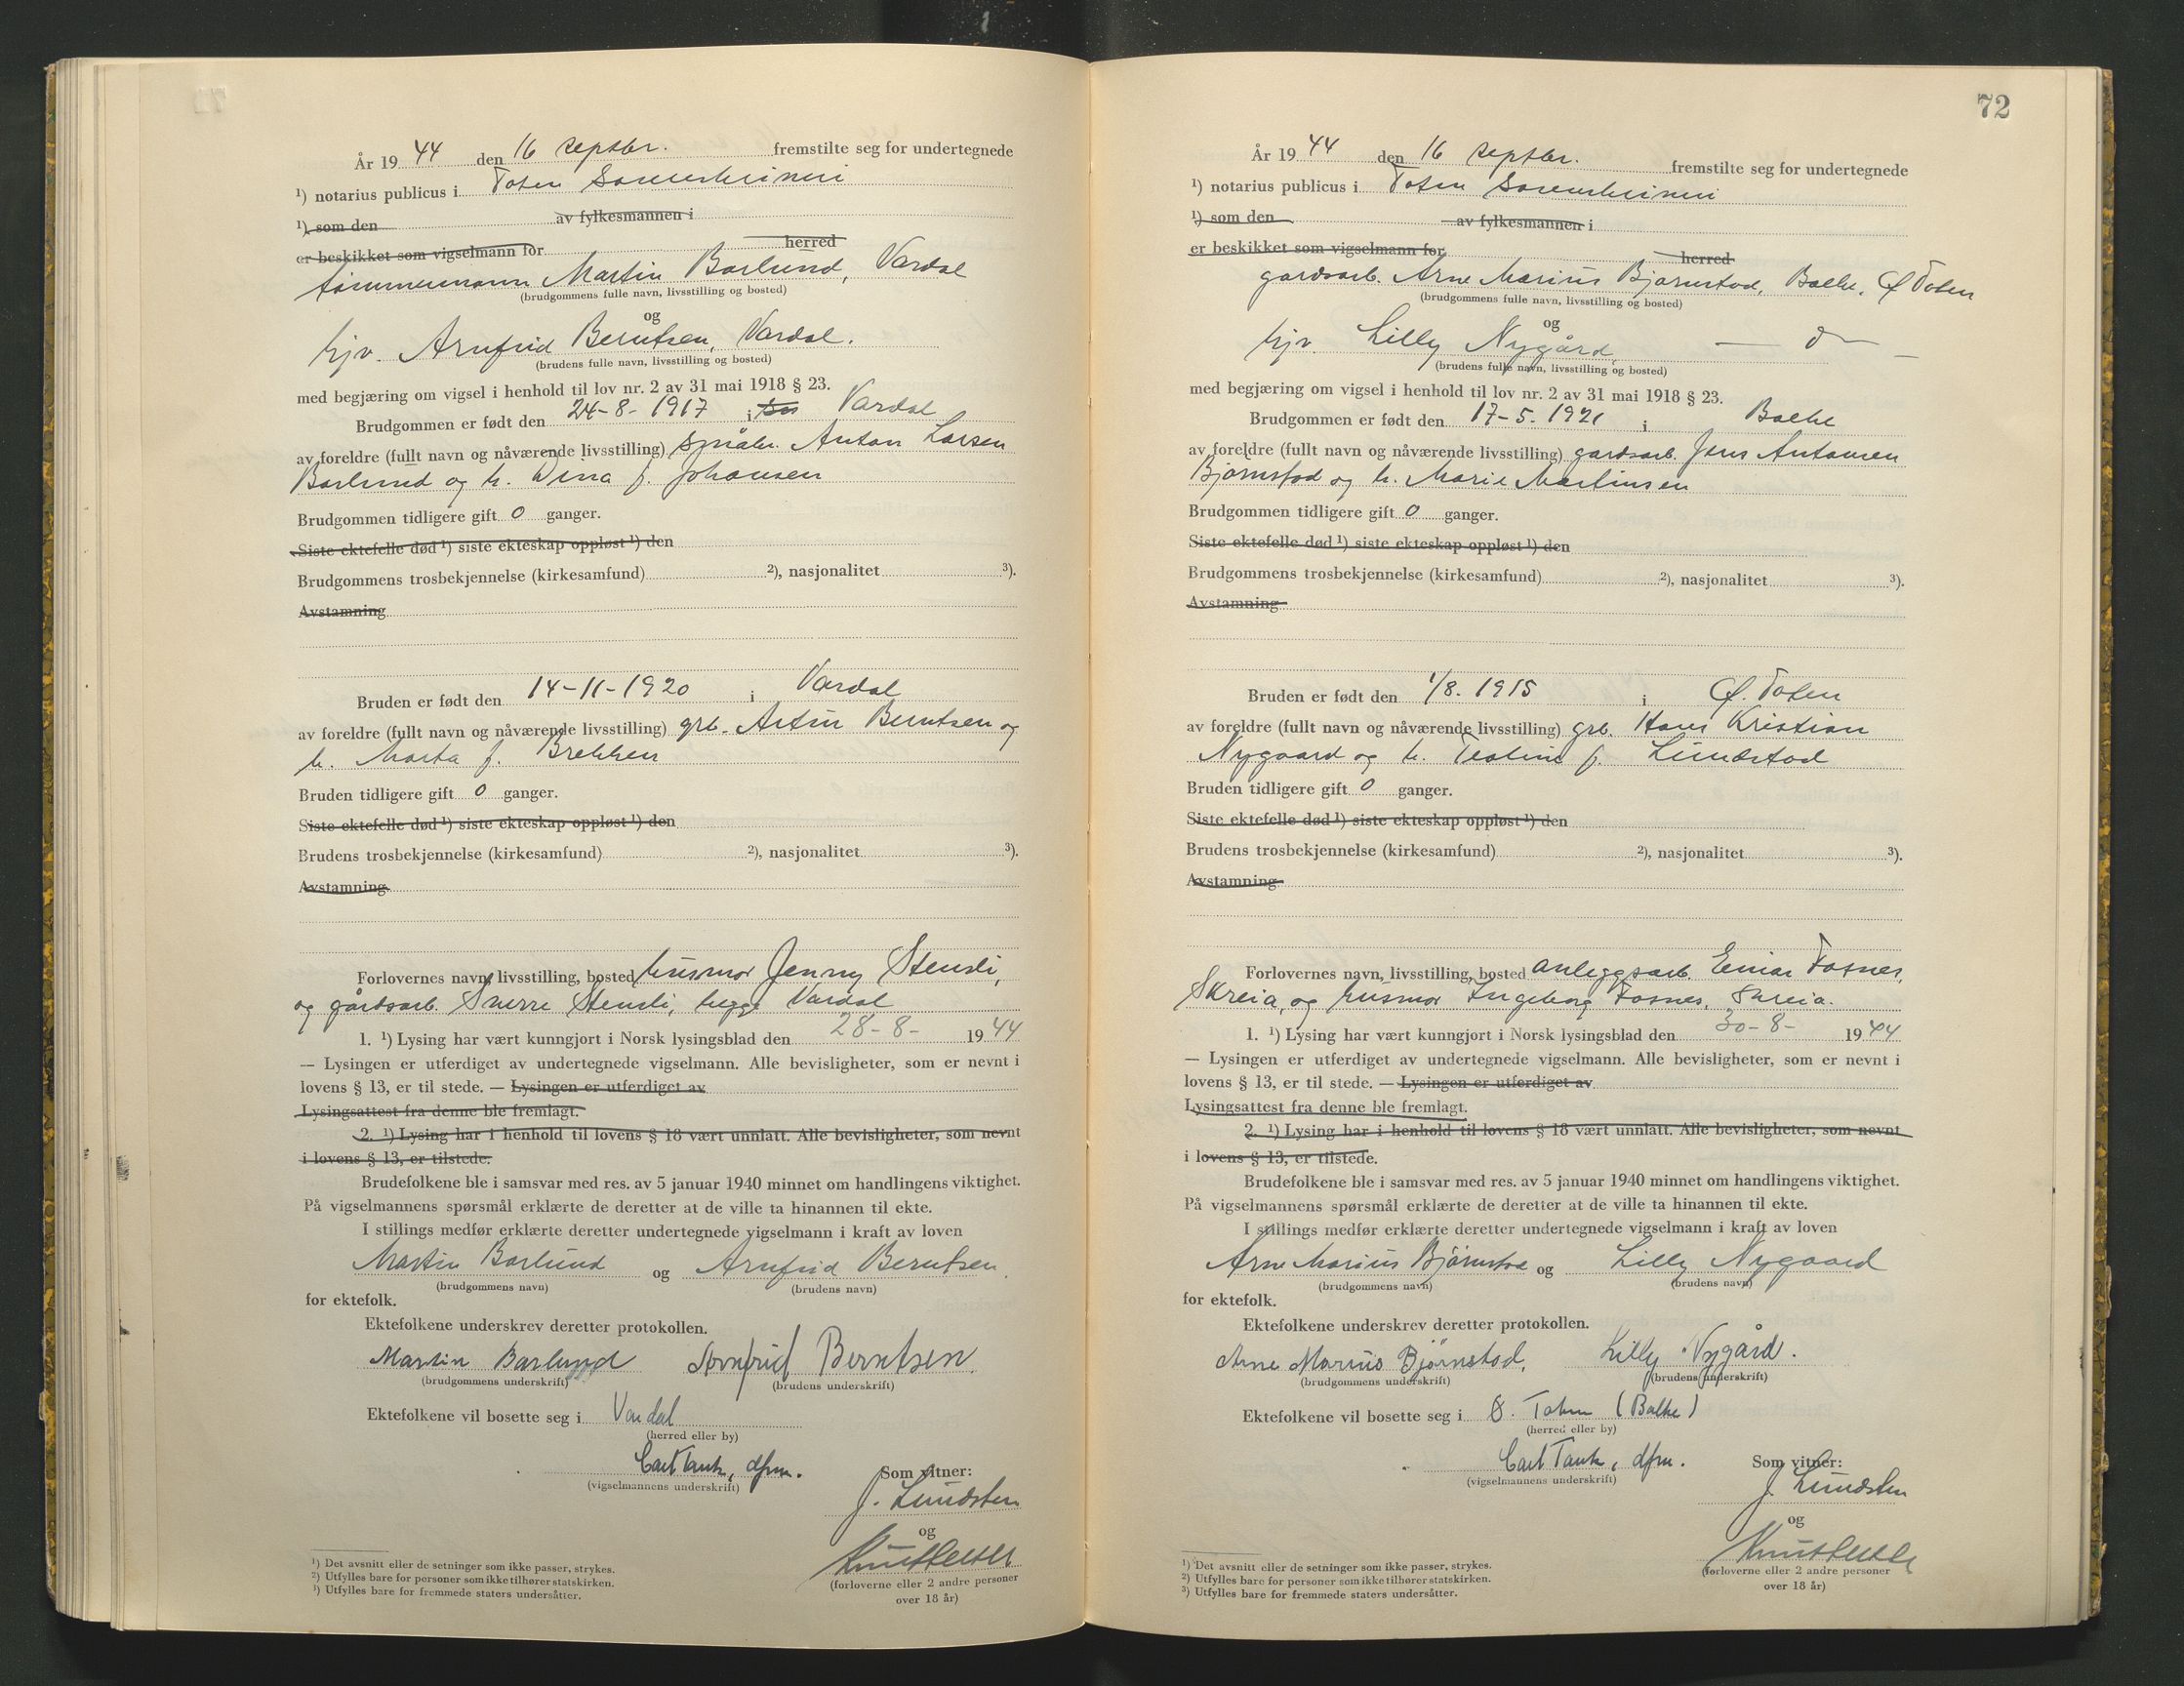 År 19 44 den 16 septbr. fremstilte seg for undertegnede
¹) notarius publicus i Toten Sorenskriveri
¹) som den av fylkesmannen i
er beskikket som vigselmann for herred
tømmermann Martin Barlund, Vardal
(brudgommens fulle navn, livsstilling og bosted)
og
hjv. Arnfrid Berntsen, Vardal.
(brudens fulle navn, livsstilling og bosted)
med begjæring om vigsel i henhold til lov nr. 2 av 31 mai 1918 § 23.
Brudgommen er født den 24-8-1917 i Vardal
av foreldre (fullt navn og nåværende livsstilling) småbr. Anton Larsen
Barlund og h. Dina f. Johansen
Brudgommen tidligere gift 0 ganger.
Siste ektefelle død ¹) siste ekteskap oppløst ¹) den
Brudgommens trosbekjennelse (kirkesamfund) ²), nasjonalitet ³).
Avstamning
Bruden er født den 14-11-1920 i Vardal
av foreldre (fullt navn og nåværende livsstilling) grb. Artur Berntsen og
h. Marta f. Brekken
Bruden tidligere gift 0 ganger.
Siste ektefelle død ¹) siste ekteskap oppløst ¹) den
Brudens trosbekjennelse (kirkesamfund) ²), nasjonalitet ³).
Avstamning
Forlovernes navn, livsstilling, bosted husmor Jenny Stensli,
og gårdsarb. Sverre Stensli, begge Vardal
1. ¹) Lysing har vært kunngjort i Norsk lysingsblad den 28-8- 1944
— Lysingen er utferdiget av undertegnede vigselmann. Alle bevisligheter, som er nevnt i
lovens § 13, er til stede. — Lysingen er utferdiget av
Lysingsattest fra denne ble fremlagt.
2. ¹) Lysing har i henhold til lovens § 18 vært unnlatt. Alle bevisligheter, som nevnt
i lovens § 13, er tilstede.
Brudefolkene ble i samsvar med res. av 5 januar 1940 minnet om handlingens viktighet.
På vigselmannens spørsmål erklærte de deretter at de ville ta hinannen til ekte.
I stillings medfør erklærte deretter undertegnede vigselmann i kraft av loven
Martin Barlund og Arnfrid Berntsen
(brudgommens navn) (brudens navn)
for ektefolk.
Ektefolkene underskrev deretter protokollen.
Martin Barlund Arnfrid Berntsen
(brudgommens underskrift) (brudens underskrift)
Ektefolkene vil bosette seg i Vardal
(herred eller by)
Carl Tank, dfm. Som vitner:
(vigselmannens underskrift)
J. Lundsten
og
(forloverne eller 2 andre personer
over 18 år)
¹) Det avsnitt eller de setninger som ikke passer, strykes.
²) Utfylles bare for personer som ikke tilhører statskirken.
³) Utfylles bare for fremmede staters undersåtter.
72
År 19 44 den 16 septbr. fremstilte seg for undertegnede
¹) notarius publicus i Toten Sorenskriveri
¹) som den av fylkesmannen i
er beskikket som vigselmann for herred
gardsarb. Arne Marius Bjørnstad, Balke, Ø Toten
(brudgommens fulle navn, livsstilling og bosted)
og
hjv. Lilly Nygård, — d — —
(brudens fulle navn, livsstilling og bosted)
med begjæring om vigsel i henhold til lov nr. 2 av 31 mai 1918 § 23.
Brudgommen er født den 17-5. 1921 i Balke
av foreldre (fullt navn og nåværende livsstilling) gardsarb. Jens Antonsen
Bjørnstad og h. Marie Martinsen
Brudgommen tidligere gift 0 ganger.
Siste ektefelle død ¹) siste ekteskap oppløst ¹) den
Brudgommens trosbekjennelse (kirkesamfund) ²), nasjonalitet ³).
Avstamning
Bruden er født den 1/8. 1915 i Ø. Toten
av foreldre (fullt navn og nåværende livsstilling) grb. Hans Kristian
Nygaard og h. Teoline f. Lundstad
Bruden tidligere gift 0 ganger.
Siste ektefelle død ¹) siste ekteskap oppløst ¹) den
Brudens trosbekjennelse (kirkesamfund) ²), nasjonalitet ³).
Avstamning
Forlovernes navn, livsstilling, bosted anleggsarb. Einar Fosnes,
Skreia, og husmor Ingeborg Fosnes, Skreia.
1. ¹) Lysing har vært kunngjort i Norsk lysingsblad den 30-8- 1944
— Lysingen er utferdiget av undertegnede vigselmann. Alle bevisligheter, som er nevnt i
lovens § 13, er til stede. — Lysingen er utferdiget av
Lysingsattest fra denne ble fremlagt.
2. ¹) Lysing har i henhold til lovens § 18 vært unnlatt. Alle bevisligheter, som nevnt
i lovens § 13, er tilstede.
Brudefolkene ble i samsvar med res. av 5 januar 1940 minnet om handlingens viktighet.
På vigselmannens spørsmål erklærte de deretter at de ville ta hinannen til ekte.
I stillings medfør erklærte deretter undertegnede vigselmann i kraft av loven
Arne Marius Bjørnstad og Lilly Nygaard
(brudgommens navn) (brudens navn)
for ektefolk.
Ektefolkene underskrev deretter protokollen.
Arne Marius Bjørnstad, Lilly Nygård.
(brudgommens underskrift) (brudens underskrift)
Ektefolkene vil bosette seg i Ø. Toten (Balke)
(herred eller by)
Carl Tank, dfm. Som vitner:
(vigselmannens underskrift)
J. Lundsten
og
(forloverne eller 2 andre personer
over 18 år)
¹) Det avsnitt eller de setninger som ikke passer, strykes.
²) Utfylles bare for personer som ikke tilhører statskirken.
³) Utfylles bare for fremmede staters undersåtter.